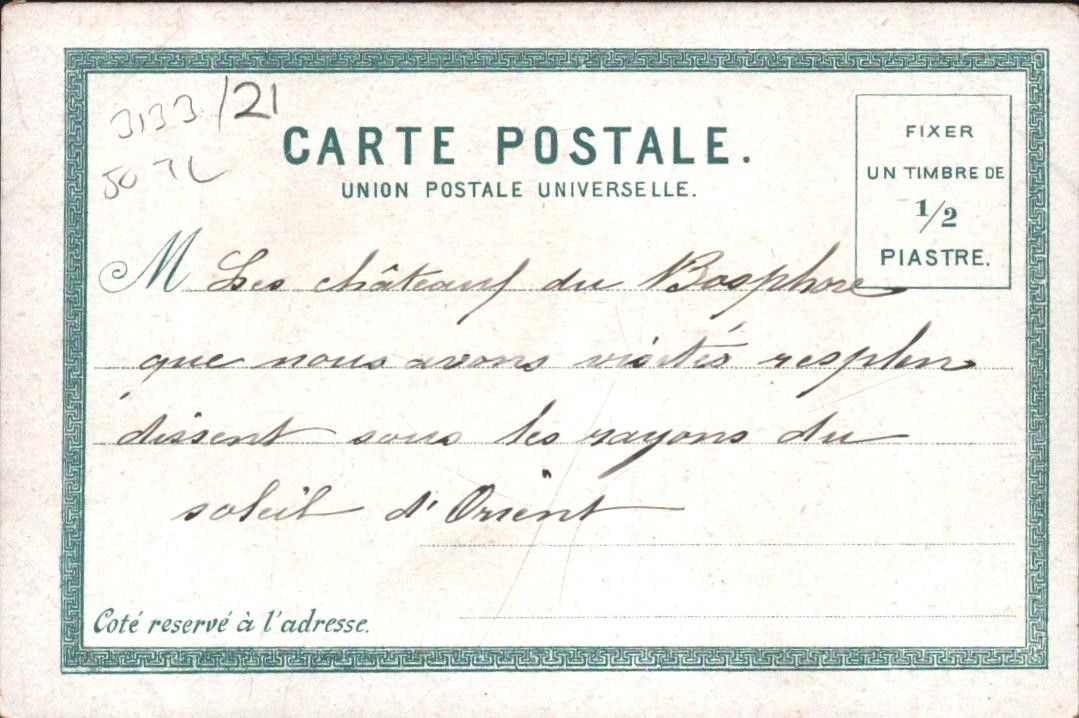 3133/21
50 TL
CARTE POSTALE.
UNION POSTALE UNIVERSELLE.
FIXER
UN TIMBRE DE
1/2
PIASTRE.
M Les châteaux du Bosphore
que nous avons visités resplen
dissent sous les rayons du
soleil d'Orient
Coté reservé à l'adresse.